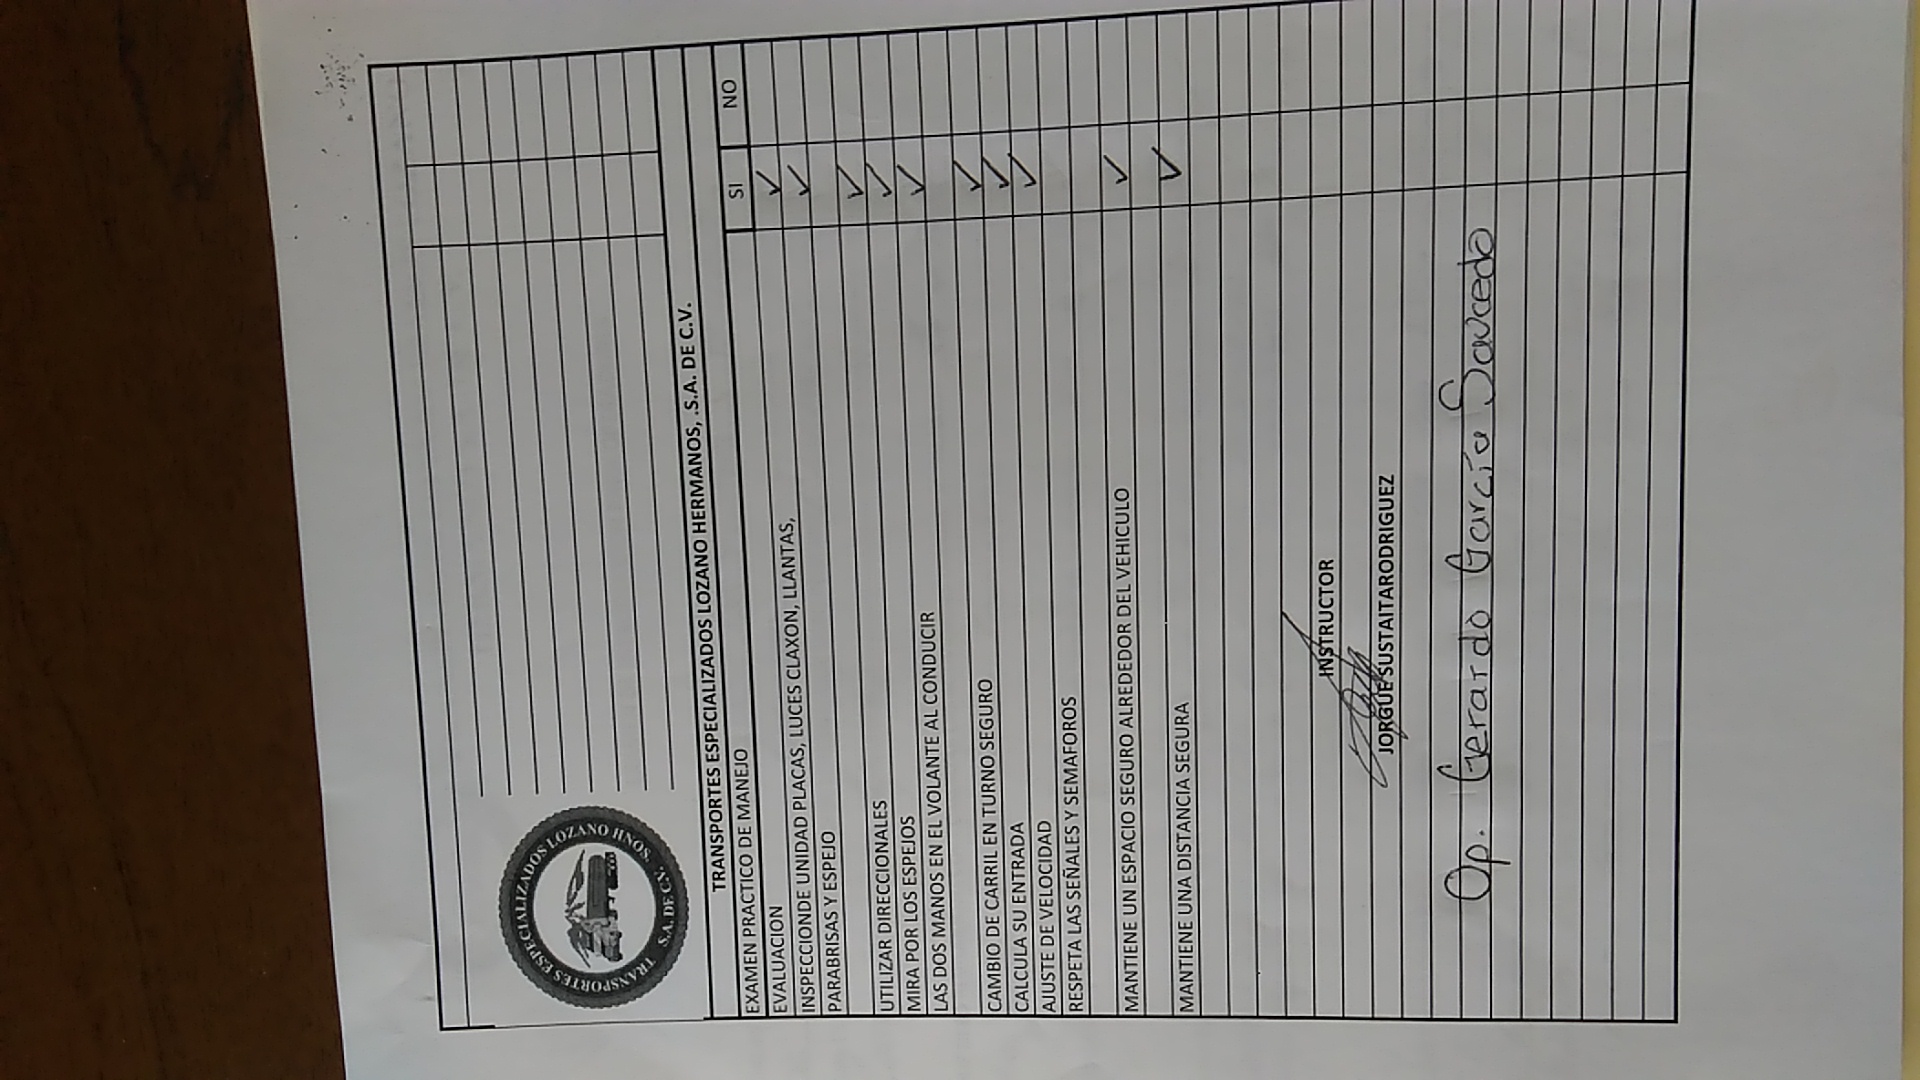 TRANSPORTES ESPECIALIZADOS LOZANO HNOS. S.A. DE C.V.
TRANSPORTES ESPECIALIZADOS LOZANO HERMANOS, .S.A. DE C.V.
EXAMEN PRACTICO DE MANEJO SI NO
EVALUACION ✓
INSPECCIONDE UNIDAD PLACAS, LUCES CLAXON, LLANTAS, ✓
PARABRISAS Y ESPEJO
UTILIZAR DIRECCIONALES ✓
MIRA POR LOS ESPEJOS ✓
LAS DOS MANOS EN EL VOLANTE AL CONDUCIR ✓
CAMBIO DE CARRIL EN TURNO SEGURO ✓
CALCULA SU ENTRADA ✓
AJUSTE DE VELOCIDAD ✓
RESPETA LAS SEÑALES Y SEMAFOROS
MANTIENE UN ESPACIO SEGURO ALREDEDOR DEL VEHICULO ✓
MANTIENE UNA DISTANCIA SEGURA ✓
INSTRUCTOR
JORGUE SUSTAITARODRIGUEZ
Op. Gerardo García Saucedo